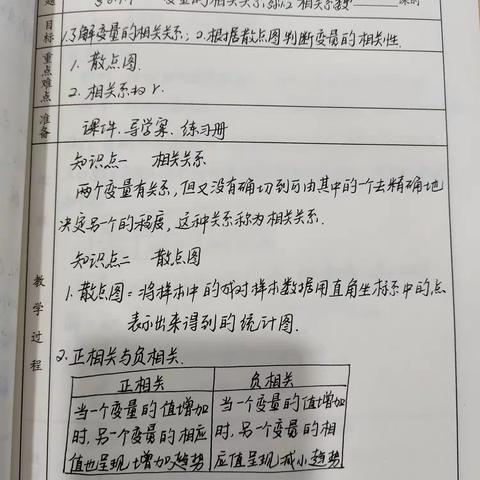 题
变量的相关关系 相关系数 课时
目标
1.了解变量的相关关系；2.根据散点图判断变量的相关性.
重点难点
1. 散点图.
2. 相关系数 r.
准备
课件、导学案、练习册
知识点一 相关关系
两个变量有关系,但又没有确切到可由其中的一个去精确地
决定另一个的程度,这种关系称为相关关系.
知识点二 散点图
1. 散点图=将样本中的成对样本数据用直角坐标系中的点
表示出来得到的统计图.
2.正相关与负相关.
正相关 负相关
当一个变量的值增加 当一个变量的值增加
时,另一个变量的相应 时,另一个变量的相
值也呈现增加趋势 应值呈现减小趋势
教学过程